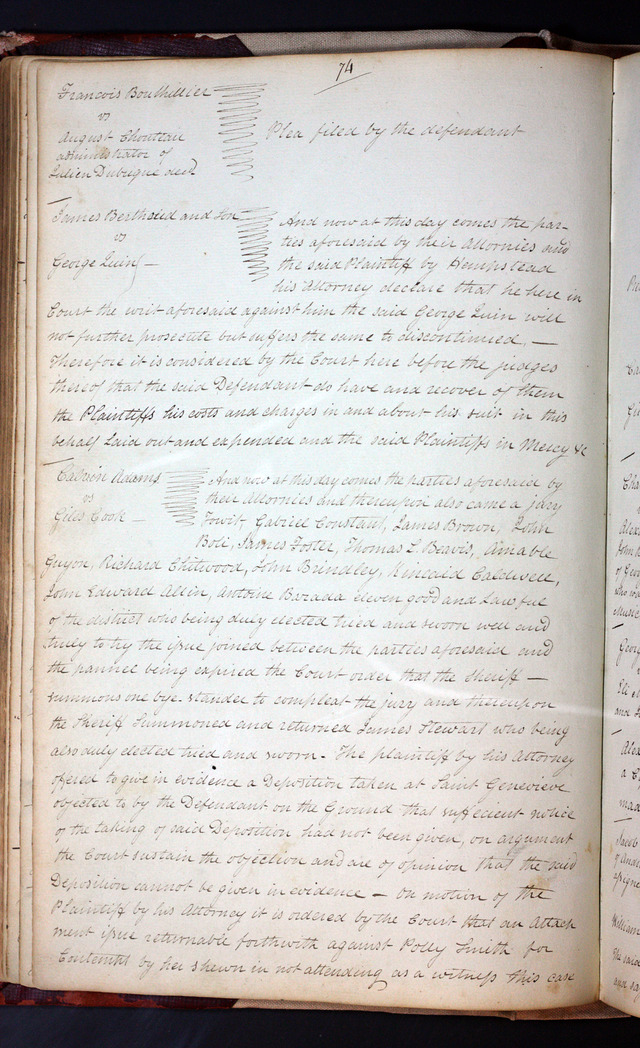 74
Francois Bouthillier
vs
August Chouteau
administrator of
Julien Dubuque decd
Plea filed by the defendant
James Berthoud and Son
vs
George Quin —
And now at this day comes the par-
ties aforesaid by their Attornies and
the said Plaintiff by Hempstead
his Attorney declare that he here in
Court the writ aforesaid against him the said George Quin will
not further prosecute but suffers the same to discontinued. —
Therefore it is considered by the Court here before the judges
thereof that the said Defendant do have and recover of them
the Plaintiffs his costs and charges in and about his suit in this
behalf Laid out and expended and the said Plaintiffs in Mercy &c
Calvin Adams
vs
Giles Cook —
And now at this day comes the parties aforesaid by
their Attornies and thereupon also came a jury
Towit, Gabriel Constant, James Brown, John
Boli, James Foster, Thomas L. Beavis, Amable
Guyon, Richard Chitwood, John Brindley, Kincaid Caldwell,
John Edward Allin, Antoine Barada eleven good and Lawful
of the district who being duly elected tried and sworn well and
truly to try the issue joined between the parties aforesaid and
the pannel being expired the Court order that the Sheriff —
summons one bye stander to compleat the jury and thereupon
the Sheriff Summoned and returned James Stewart who being
also duly elected tried and sworn. The plaintiff by his Attorney
offered to give in evidence a Deposition taken at Saint Genevieve
objected to by the Defendant on the Ground that sufficient notice
of the taking of said Deposition had not been given, on argument
the Court sustain the objection and are of opinion that the said
Deposition cannot be given in evidence — On motion of the
Plaintiff by his Attorney it is ordered by the Court that an Attach
ment issue returnable forthwith against Polly Smith for
Contempt by her shewn in not attending as a witness this case